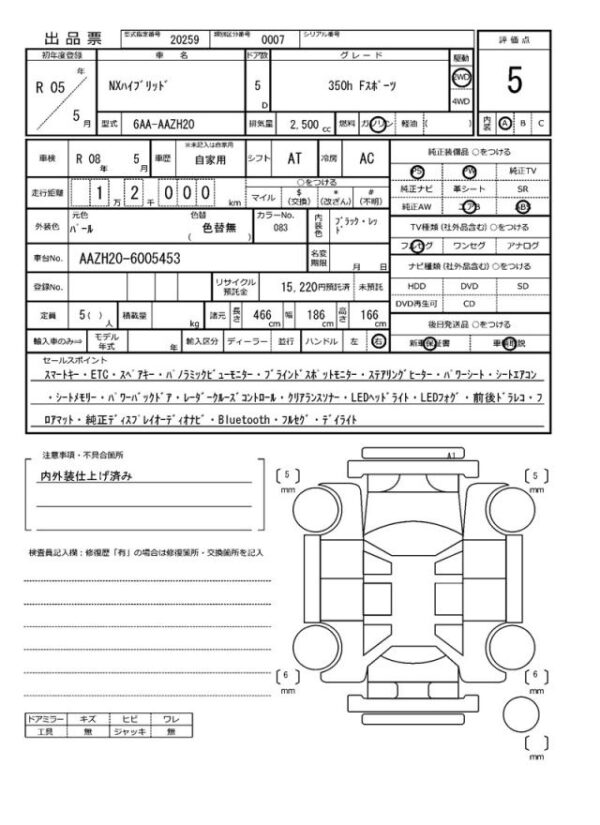 出品票 型式指定番号 20259 類別区分番号 0007 シリアル番号
評価点
5
内装 A B C
初年度登録 車名 ドア数 グレード 駆動
R 05 年 5 月 NXハイブリッド 5 D 350h Fスポーツ 2WD 4WD
型式 6AA-AAZH20 排気量 2,500 cc 燃料 ガソリン 軽油 ( )
車検 R 08 年 5 月 車歴 ※未記入は自家用 自家用 シフト AT 冷房 AC
走行距離 1 万 2 千 0 0 0 km
○をつける
マイル $ (交換) * (改ざん) # (不明)
外装色 元色 パール 色替 ( 色替無 ) カラーNo. 083 内装色 ブラック・レッド
車台No. AAZH20-6005453 名変期限 月 日
登録No. リサイクル預託金 15,220円預託済 未預託
定員 5( )人 積載量 kg 諸元 長さ 466 cm 幅 186 cm 高さ 166 cm
輸入車のみ⇒ モデル年式 年 輸入区分 ディーラー 並行 ハンドル 左 右
純正装備品 ○をつける
PS PW 純正TV
純正ナビ 革シート SR
純正AW エアB ABS
TV種類(社外品含む) ○をつける
フルセグ ワンセグ アナログ
ナビ種類(社外品含む) ○をつける
HDD DVD SD
DVD再生可 CD
後日発送品 ○をつける
新車保証書 車輌取説
セールスポイント
スマートキー・ETC・スペアキー・パノラミックビューモニター・ブラインドスポットモニター・ステアリングヒーター・パワーシート・シートエアコン
・シートメモリー・パワーバックドア・レーダークルーズコントロール・クリアランスソナー・LEDヘッドライト・LEDフォグ・前後ドラレコ・フ
ロアマット・純正ディスプレイオーディオナビ・Bluetooth・フルセグ・デイライト
注意事項・不具合箇所
内外装仕上げ済み
検査員記入欄:修復歴「有」の場合は修復箇所・交換箇所を記入
A1
5 mm
5 mm
6 mm
6 mm
mm
ドアミラー キズ ヒビ ワレ
工具 無 ジャッキ 無